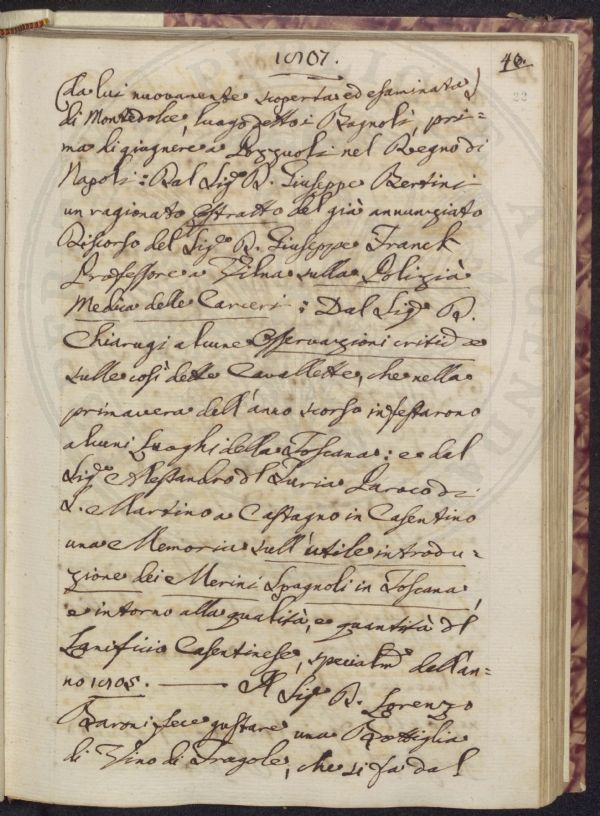 1807.
43.
22
(da lui nuovamente scoperta ed esaminata)
di Montedolce, luogo detto i Bagnoli, pri=
ma di giugnere a Pozzuoli nel Regno di
Napoli: Dal Sig.e D. Giuseppe Bertini
un ragionato estratto del già annunziato
Discorso del Sig.e D. Giuseppe Franck
Professore a Vilna sulla Polizia
Medica delle Carceri: Dal Sig.e D.
Chiarugi alcune Osservazioni critiche
sulle così dette Cavallette, che nella
primavera dell'anno scorso infestarono
alcuni Luoghi della Toscana: e dal
Sig.e Alessandro del Turia Paroco di
S. Martino a Castagno in Casentino
una Memoria sull'utile introdu=
zione dei Merini Spagnoli in Toscana,
e intorno alla qualità, e quantità del
Lanificio Casentinese, specialm.e dell'an=
no 1805. — Il Sig.e D. Lorenzo
Baroni fece gustare una Bottiglia
di Vino di Fragole, che si fa dal